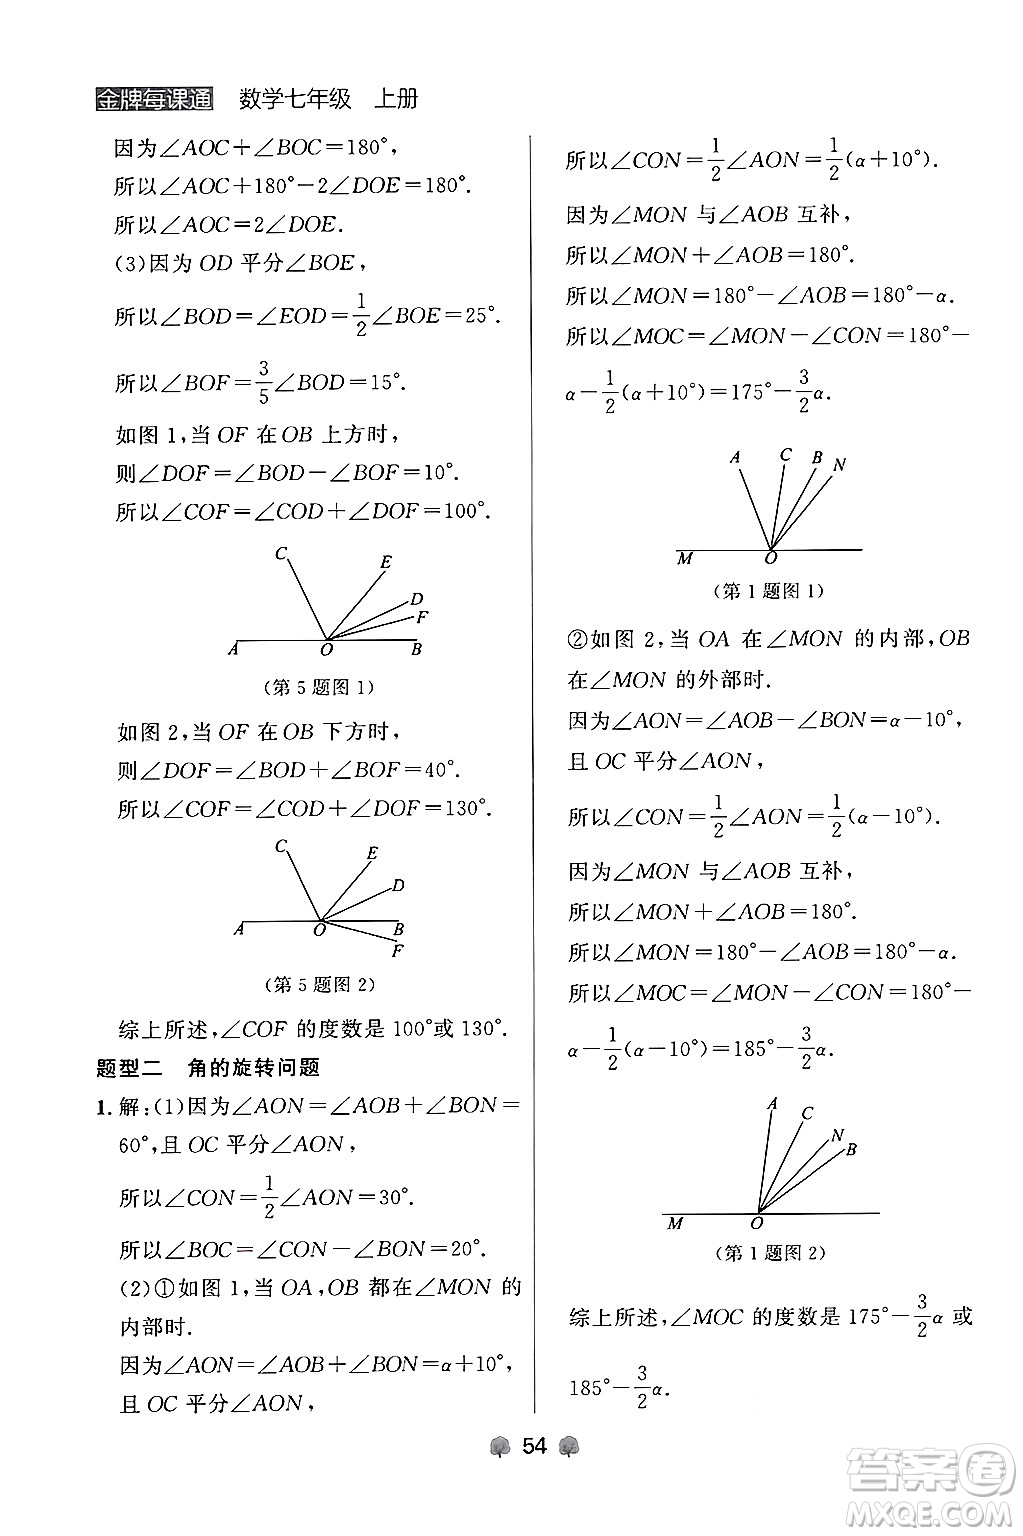 金牌每课通 数学七年级 上册
因为∠AOC+∠BOC=180°,
所以∠AOC+180°-2∠DOE=180°.
所以∠AOC=2∠DOE.
(3)因为 OD 平分∠BOE,
所以∠BOD=∠EOD=1/2∠BOE=25°.
所以∠BOF=3/5∠BOD=15°.
如图 1,当 OF 在 OB 上方时,
则∠DOF=∠BOD-∠BOF=10°.
所以∠COF=∠COD+∠DOF=100°.
C E D F A O B
(第 5 题图 1)
如图 2,当 OF 在 OB 下方时,
则∠DOF=∠BOD+∠BOF=40°.
所以∠COF=∠COD+∠DOF=130°.
C E D A O B F
(第 5 题图 2)
综上所述,∠COF 的度数是 100°或 130°.
题型二 角的旋转问题
1. 解:(1)因为∠AON=∠AOB+∠BON=
60°,且 OC 平分∠AON,
所以∠CON=1/2∠AON=30°.
所以∠BOC=∠CON-∠BON=20°.
(2)①如图 1,当 OA,OB 都在∠MON 的
内部时.
因为∠AON=∠AOB+∠BON=α+10°,
且 OC 平分∠AON,
所以∠CON=1/2∠AON=1/2(α+10°).
因为∠MON 与∠AOB 互补,
所以∠MON+∠AOB=180°.
所以∠MON=180°-∠AOB=180°-α.
所以∠MOC=∠MON-∠CON=180°-
α-1/2(α+10°)=175°-3/2α.
A C B N M O
(第 1 题图 1)
②如图 2,当 OA 在∠MON 的内部,OB
在∠MON 的外部时.
因为∠AON=∠AOB-∠BON=α-10°,
且 OC 平分∠AON,
所以∠CON=1/2∠AON=1/2(α-10°).
因为∠MON 与∠AOB 互补,
所以∠MON+∠AOB=180°.
所以∠MON=180°-∠AOB=180°-α.
所以∠MOC=∠MON-∠CON=180°-
α-1/2(α-10°)=185°-3/2α.
A C N B M O
(第 1 题图 2)
综上所述,∠MOC 的度数是 175°-3/2α 或
185°-3/2α.
54
答案圈
MXQE.COM